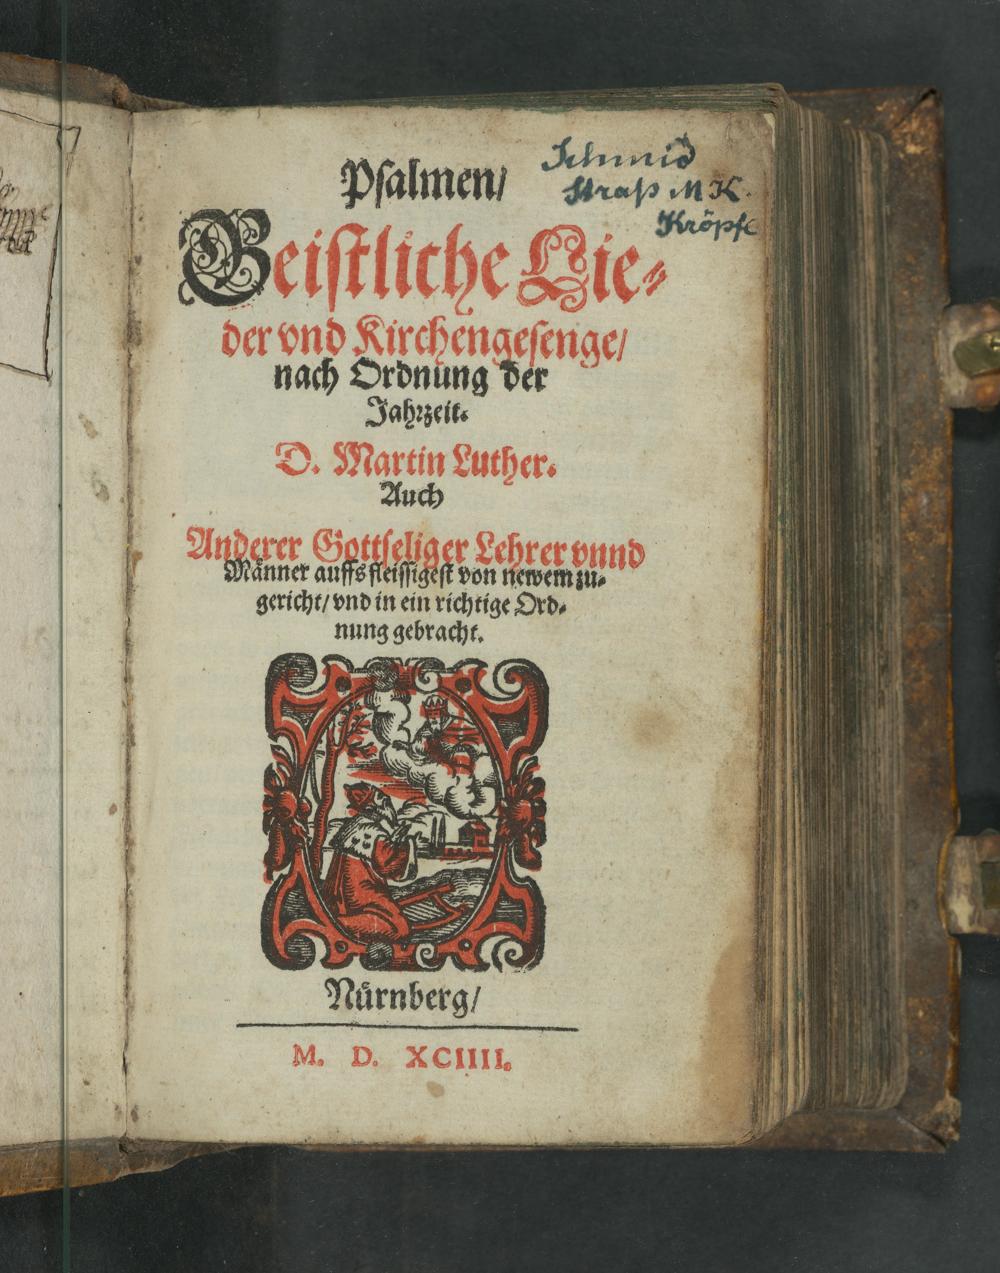 Psalmen/
Geistliche Lie⸗
der vnd Kirchengesenge/
nach Ordnung der
Jahrzeit.
D. Martin Luther.
Auch
Anderer Gottseliger Lehrer vnnd
Männer auffs fleissigest von newem zu⸗
gericht/ vnd in ein richtige Ord⸗
nung gebracht.
Nürnberg/
M. D. XCIIII.
Schmid
Straß M K.